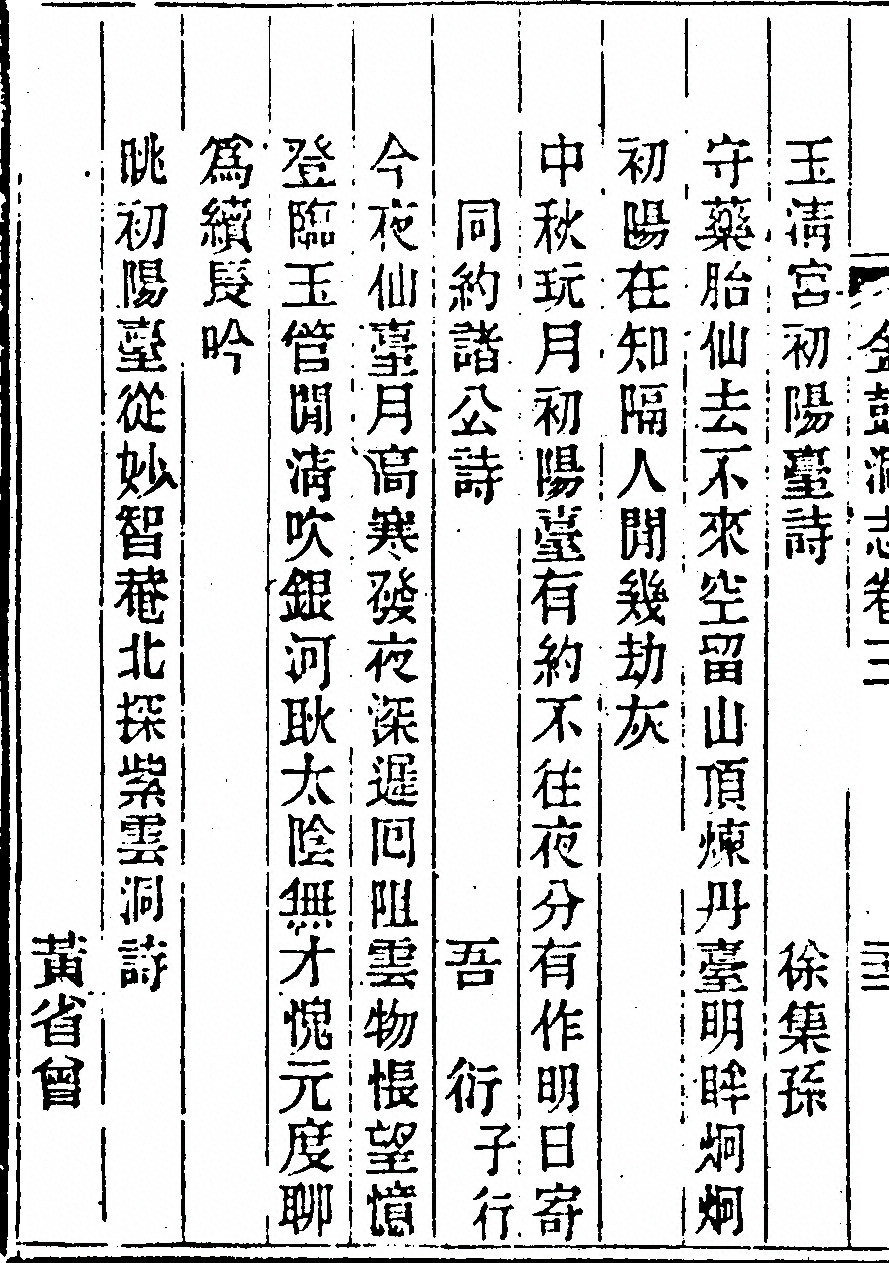 金鼓洞志卷三
玉清宮初陽臺詩　徐集孫
守藥胎仙去不來空留山頂煉丹臺明眸炯炯
初陽在知隔人閒幾劫灰
中秋玩月初陽臺有約不往夜分有作明日寄
同約諸公詩　吾衍子行
今夜仙臺月高寒發夜深遲回阻雲物悵望憶
登臨玉管閒清吹銀河耿太陰無才愧元度聊
爲續長吟
眺初陽臺從妙智菴北探紫雲洞詩
黃省曾